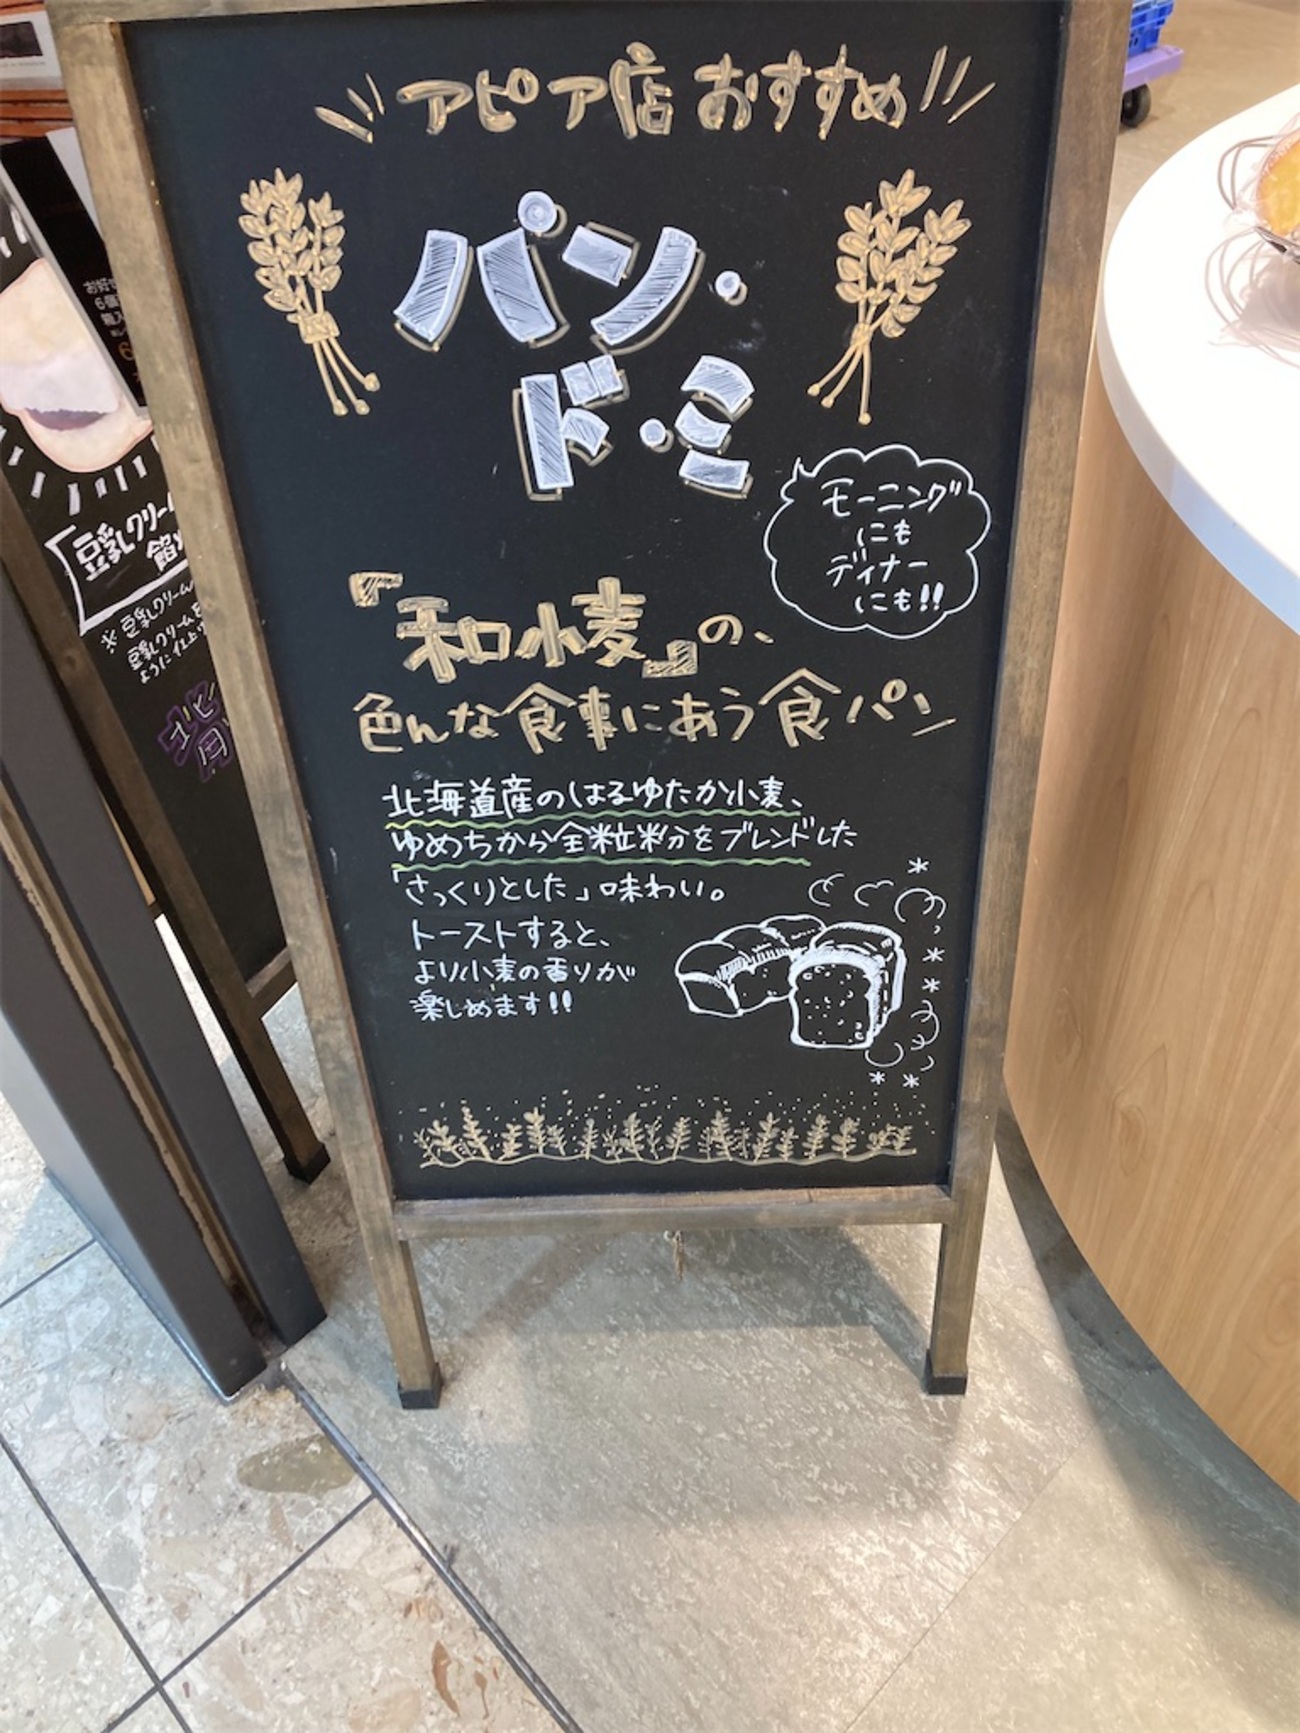 アピア店おすすめ
パン・
ド・ミ
モーニング
にも
ディナー
にも!!
『和小麦』の、
色んな食事にあう食パン
北海道産のはるゆたか小麦、
ゆめちから全粒粉分をブレンドした
「さっくりとした」味わい。
トーストすると、
より小麦の香りが
楽しめます!!
豆乳クリーム
※豆乳クリーム
豆乳クリームを
ように仕上